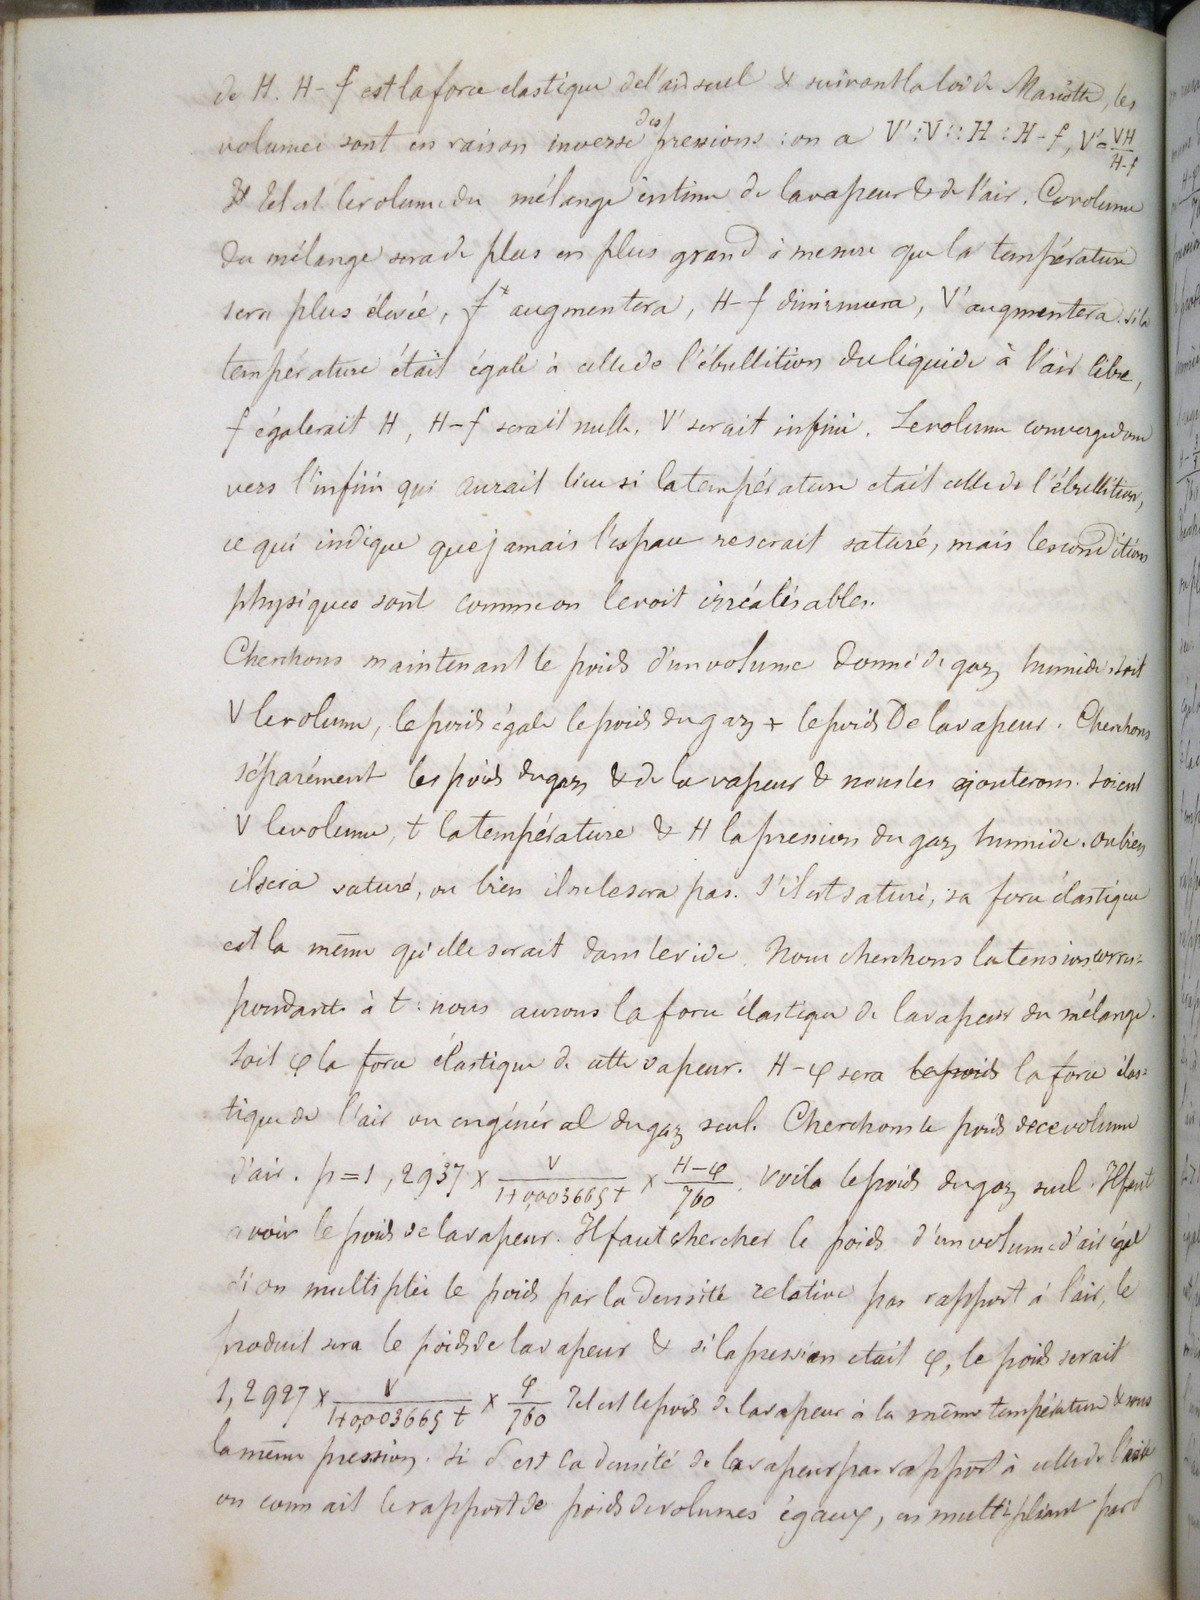 de H. H-f est la force elastique de l'air seul & suivant la loi de Mariotte, les
volumes sont en raison inverse des pressions : on a V' : V :: H : H-f, V' = VH/H-f
Tel est le volume du mélange intime de la vapeur & de l'air. Ce volume
du mélange sera de plus en plus grand à mesure que la température
sera plus élevée, f augmentera, H-f diminuera, V' augmentera. si la
température était égale à celle de l'ébullition du liquide à l'air libre,
f égalerait H, H-f serait nulle, V' serait infini. Le volume converge donc
vers l'infini qui aurait lieu si la température etait celle de l'ébullition,
ce qui indique que jamais l'espace ne serait saturé, mais les conditions
physiques sont comme on le voit irréalisables.
Cherchons maintenant le poids d'un volume donné de gaz humide. soit
V le volume, le poids égale le poids du gaz + le poids de la vapeur. Cherchons
séparément les poids du gaz & de la vapeur & nous les ajouterons. Soient
V le volume, t la température & H la pression du gaz humide. ou bien
il sera saturé, ou bien il ne le sera pas. S'il est saturé, sa force élastique
est la même qu'elle serait dans le vide. Nous cherchons la tension corres=
pondante à t : nous aurons la force élastique de la vapeur du mélange.
Soit φ la force élastique de cette vapeur. H-φ sera le poids la force élas=
tique de l'air ou en général du gaz seul. Cherchons le poids de ce volume
d'air. p = 1,2937 × V/1+0,003665 t × H-φ/760. Voila le poids du gaz seul. Il faut
avoir le poids de la vapeur. Il faut chercher le poids d'un volume d'air égal
si on multiplie le poids par la densité relative par rapport à l'air, le
produit sera le poids de la vapeur & si la pression etait φ, le poids serait
1,2927 × V/1+0,003665 t × φ/760 Tel est le poids de la vapeur à la même température & sous
la même pression. Si δ est la densité de la vapeur par rapport à celle de l'air
on connait le rapport de poids de volumes égaux, en multipliant par δ